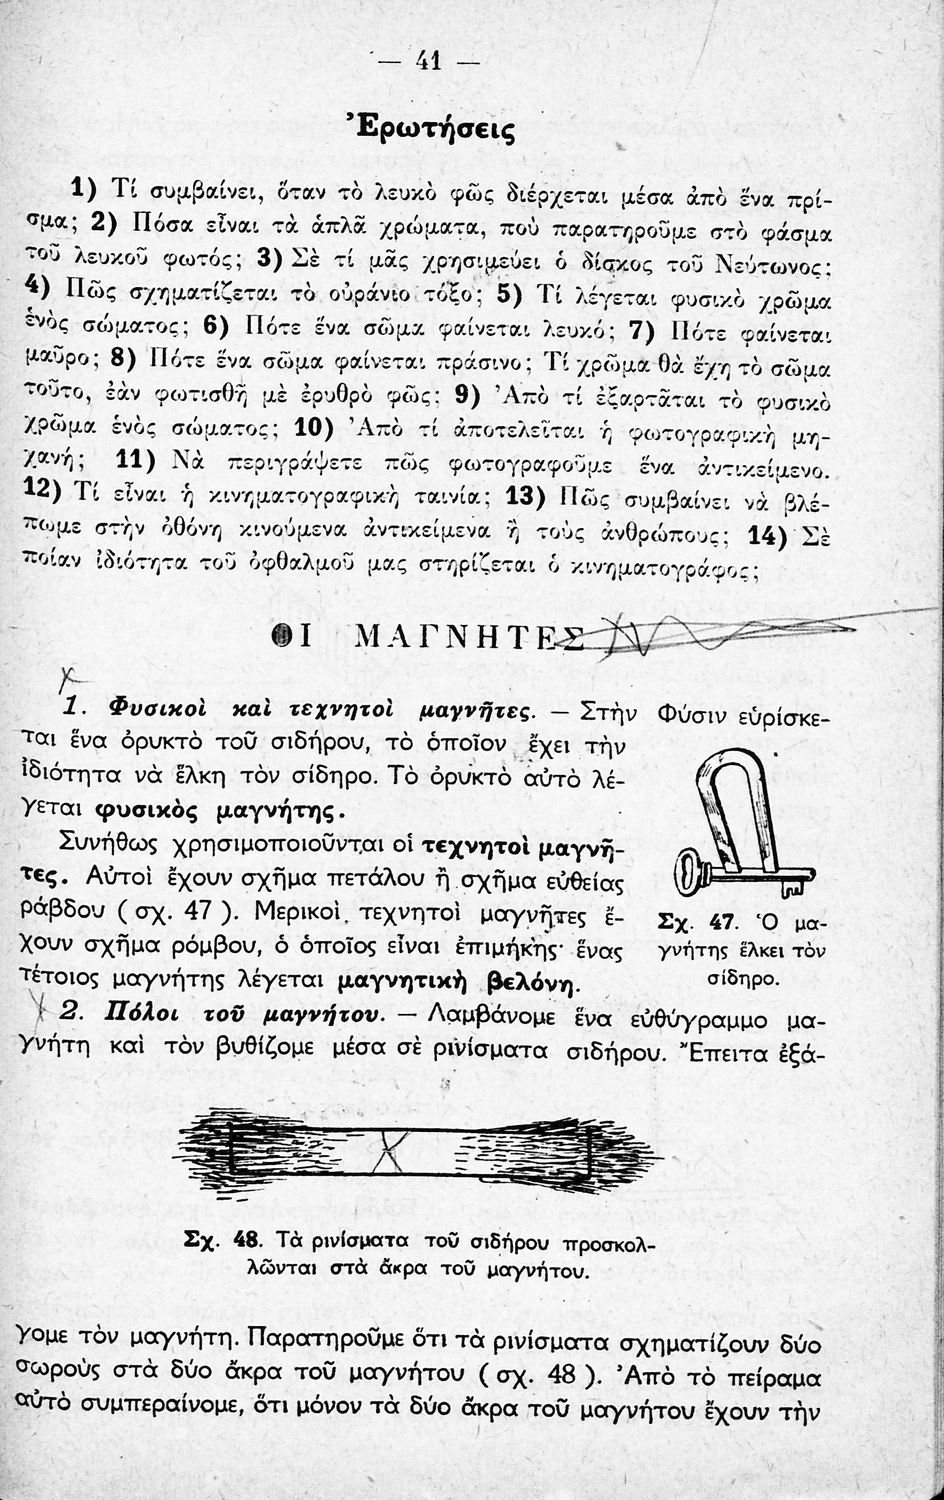 — 41 —
Ἐρωτήσεις
1) Τί συμβαίνει, ὅταν τὸ λευκὸ φῶς διέρχεται μέσα ἀπὸ ἕνα πρί-
σμα; 2) Πόσα εἶναι τὰ ἁπλᾶ χρώματα, ποὺ παρατηροῦμε στὸ φάσμα
τοῦ λευκοῦ φωτός; 3) Σὲ τί μᾶς χρησιμεύει ὁ δίσκος τοῦ Νεύτωνος;
4) Πῶς σχηματίζεται τὸ οὐράνιο τόξο; 5) Τί λέγεται φυσικὸ χρῶμα
ἑνὸς σώματος; 6) Πότε ἕνα σῶμα φαίνεται λευκό; 7) Πότε φαίνεται
μαῦρο; 8) Πότε ἕνα σῶμα φαίνεται πράσινο; Τί χρῶμα θὰ ἔχη τὸ σῶμα
τοῦτο, ἐὰν φωτισθῆ μὲ ἐρυθρὸ φῶς; 9) Ἀπὸ τί ἐξαρτᾶται τὸ φυσικὸ
χρῶμα ἑνὸς σώματος; 10) Ἀπὸ τί ἀποτελεῖται ἡ φωτογραφικὴ μη-
χανή; 11) Νὰ περιγράψετε πῶς φωτογραφοῦμε ἕνα ἀντικείμενο.
12) Τί εἶναι ἡ κινηματογραφικὴ ταινία; 13) Πῶς συμβαίνει νὰ βλέ-
πωμε στὴν ὀθόνη κινούμενα ἀντικείμενα ἢ τοὺς ἀνθρώπους; 14) Σὲ
ποίαν ἰδιότητα τοῦ ὀφθαλμοῦ μας στηρίζεται ὁ κινηματογράφος;
ΟΙ ΜΑΓΝΗΤΕΣ
1. Φυσικοὶ καὶ τεχνητοὶ μαγνῆτες. — Στὴν Φύσιν εὑρίσκε-
ται ἕνα ὀρυκτὸ τοῦ σιδήρου, τὸ ὁποῖον ἔχει τὴν
ἰδιότητα νὰ ἕλκη τὸν σίδηρο. Τὸ ὀρυκτὸ αὐτὸ λέ-
γεται φυσικὸς μαγνήτης.
Συνήθως χρησιμοποιοῦνται οἱ τεχνητοὶ μαγνῆ-
τες. Αὐτοὶ ἔχουν σχῆμα πετάλου ἢ σχῆμα εὐθείας
ράβδου ( σχ. 47 ). Μερικοὶ τεχνητοὶ μαγνῆτες ἔ-
χουν σχῆμα ρόμβου, ὁ ὁποῖος εἶναι ἐπιμήκης· ἕνας
τέτοιος μαγνήτης λέγεται μαγνητικὴ βελόνη.
Σχ. 47. Ὁ μα-
γνήτης ἕλκει τὸν
σίδηρο.
2. Πόλοι τοῦ μαγνήτου. — Λαμβάνομε ἕνα εὐθύγραμμο μα-
γνήτη καὶ τὸν βυθίζομε μέσα σὲ ρινίσματα σιδήρου. Ἔπειτα ἐξά-
Σχ. 48. Τὰ ρινίσματα τοῦ σιδήρου προσκολ-
λῶνται στὰ ἄκρα τοῦ μαγνήτου.
γομε τὸν μαγνήτη. Παρατηροῦμε ὅτι τὰ ρινίσματα σχηματίζουν δύο
σωροὺς στὰ δύο ἄκρα τοῦ μαγνήτου ( σχ. 48 ). Ἀπὸ τὸ πείραμα
αὐτὸ συμπεραίνομε, ὅτι μόνον τὰ δύο ἄκρα τοῦ μαγνήτου ἔχουν τὴν